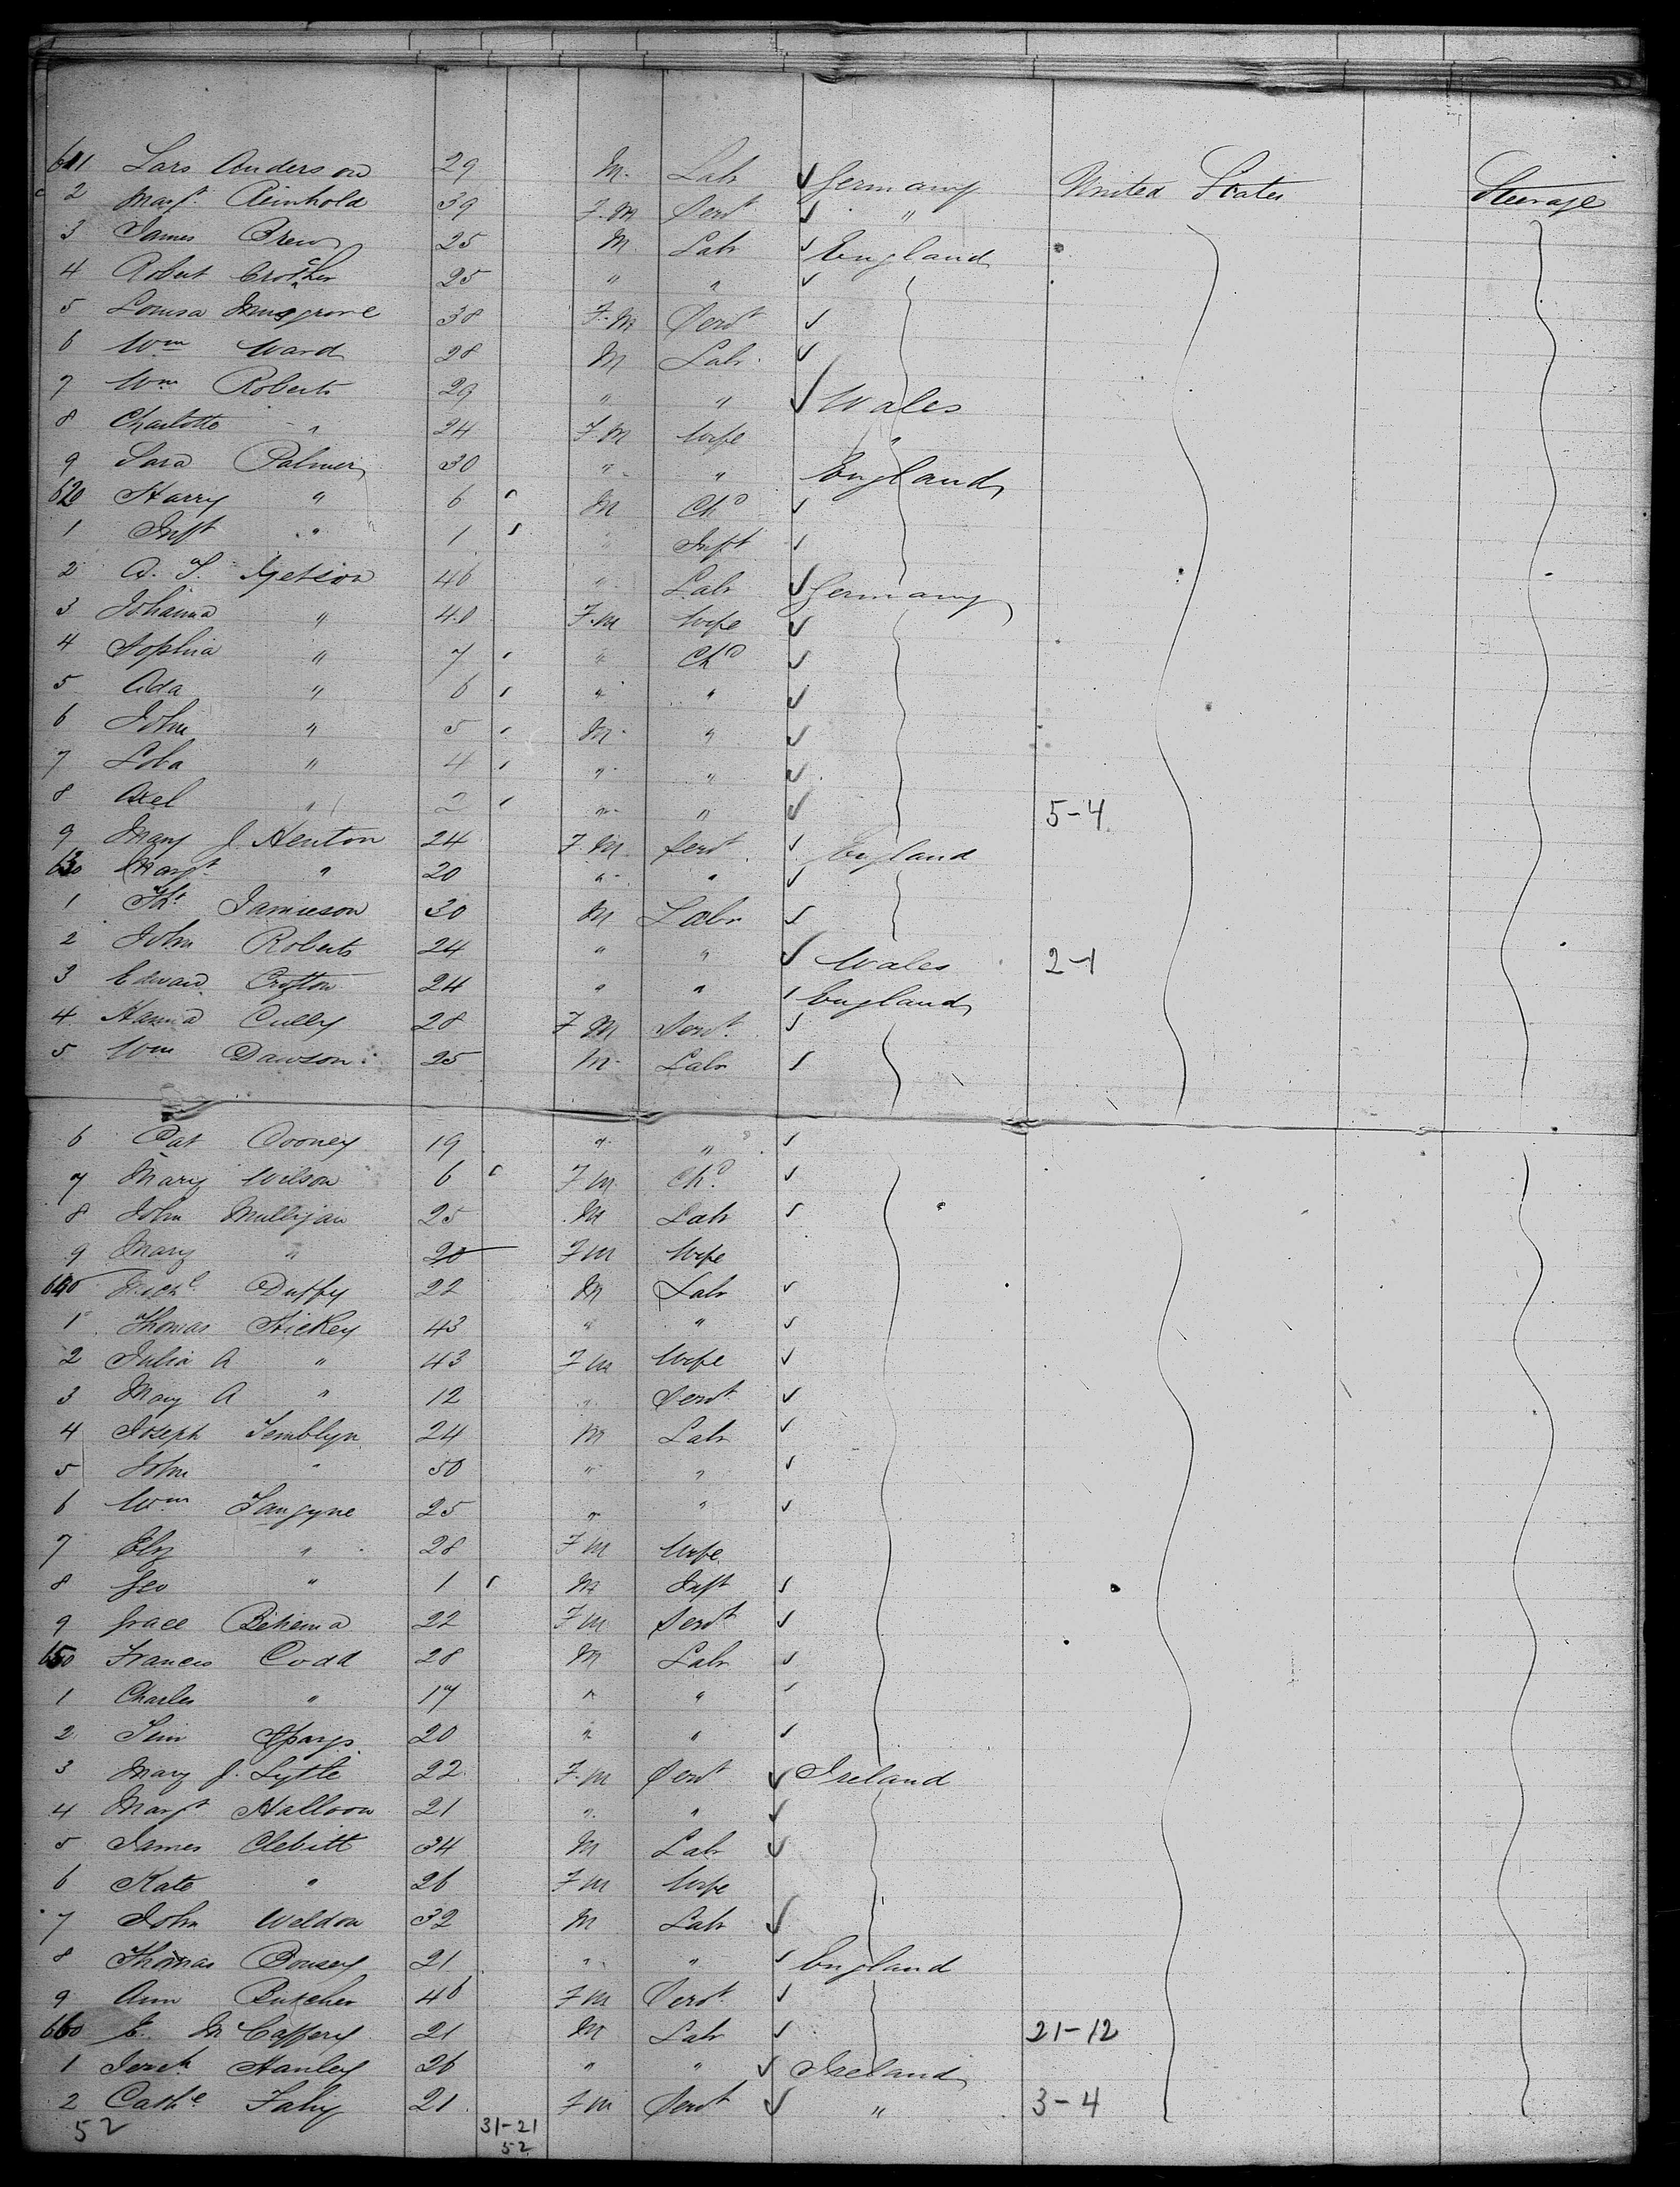 611 Lars Anderson 29 M. Labr Germany United States Steerage
2 Margt. Reinhold 39 F.M Servt "
3 James Brew 25 M Labr England
4 Robert 25 " "
5 Louisa Musgrove 38 F.M Servt
6 Wm Ward 28 M Labr.
7 Wm Roberts 29 " " Wales
8 Charlotte " 24 F.M Wife "
9 Sara Palmer 30 " " England
620 Harry " 6 M Chd
1 Inft " 1 " Inft
2 A. T. 46 " Labr Germany
3 Johanna " 40 F.M Wife
4 Sophia " 7 " Chd
5 Ada " 6 " "
6 John " 5 M. "
7 " 4 " "
8 Axel " 2 " " 5-4
9 Mary J Henton 24 F M. Servt. England
630 Margt " 20 " "
1 Jamieson 30 M Labr
2 John Roberts 24 " " Wales 2-1
3 Edward Crofton 24 " " England
4 Hanna Cully 28 F M Servt.
5 Wm Dawson 25 M. Labr
6 Pat Cooney 19 " "
7 Mary Wilson 6 F M Chd.
8 John Mulligan 25 M Labr
9 Mary " 20 F M Wife
640 Michl Duffy 22 M Labr
1 Thomas Hickey 43 " "
2 Julia A " 43 F M Wife
3 Mary A " 12 " Servt.
4 Joseph Temblyn 24 M Labr
5 John " 50 " "
6 Wm Tangyne 25 " "
7 Elz " 28 F M Wife
8 Geo " 1 M Inft
9 Grace 22 F M Servt
650 Francis Codd 28 M Labr
1 Charles " 17 " "
2 20 " "
3 Mary J. Lytle 22 F.M Servt Ireland
4 Margt Halloon 21 " "
5 James Clebitt 34 M Labr
6 Kate " 26 F M Wife
7 John Weldon 32 M Labr
8 Thomas 21 " " England
9 Ann Butcher 46 F M Servt.
660 E. McCaffery 21 M Labr 21-12
1 Hanley 26 " " Ireland
2 Cathe Fahy 21 F M Servt " 3-4
52 31-21
52